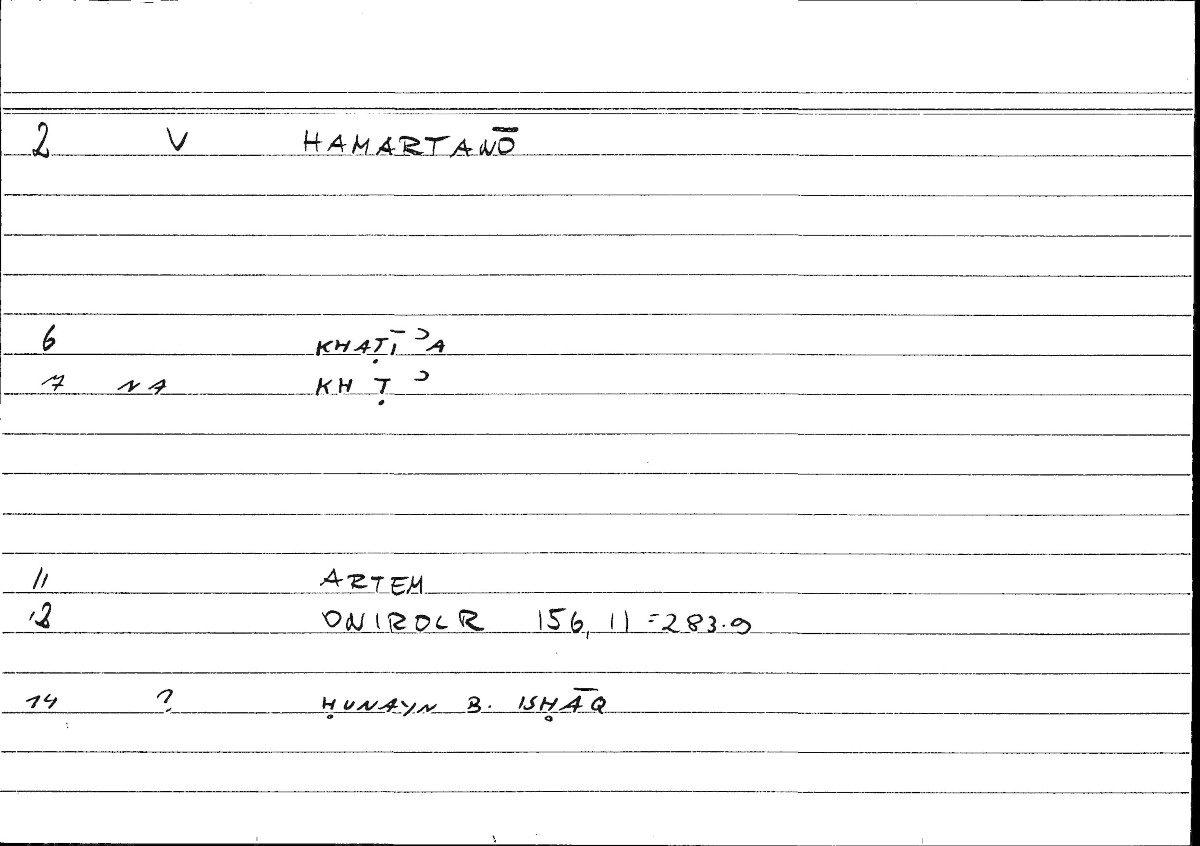 2 V HAMARTANŌ
6 KHAṬĪʾA
7 NA KH Ṭ ʾ
11 ARTEM
12 ONIROCR 156, 11 = 283.9
14 ? ḤUNAYN B. ISḤĀQ